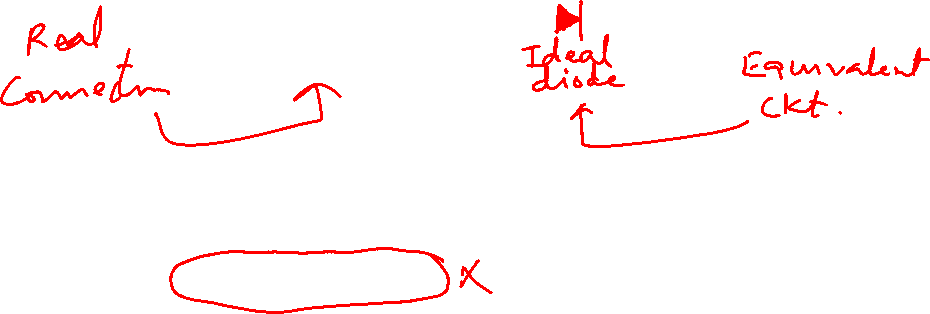 Real
Connectn
Ideal
diode
Equivalent
Ckt.
X